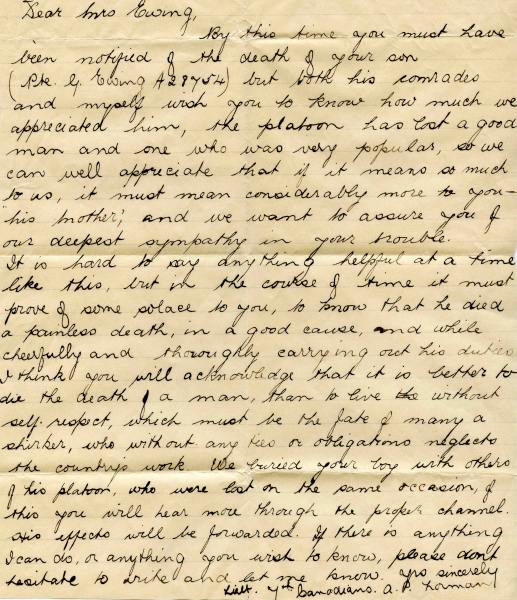 Dear Mrs Ewing,
By this time you must have
been notified of the death of your son
(Pte. G. Ewing A28754) but both his comrades
and myself wish you to know how much we
appreciated him, the platoon has lost a good
man and one who was very popular, so we
can well appreciate that if it means so much
to us, it must mean considerably more to you—
his mother; and we want to assure you of
our deepest sympathy in your trouble.
It is hard to say anything helpful at a time
like this, but in the course of time it must
prove of some solace to you, to know that he died
a painless death, in a good cause, and while
cheerfully and thoroughly carrying out his duties
I think you will acknowledge that it is better to
die the death of a man, than to live the without
self-respect, which must be the fate of many a
shirker, who without any ties or obligations neglects
the country's work. We buried your boy with others
of his platoon, who were lost on the same occasion, of
this you will hear more through the proper channel.
His effects will be forwarded. If there is anything
I can do, or anything you wish to know, please don't
hesitate to write and let me know. Yrs sincerely
Lieut. 7th Canadians. A. P.